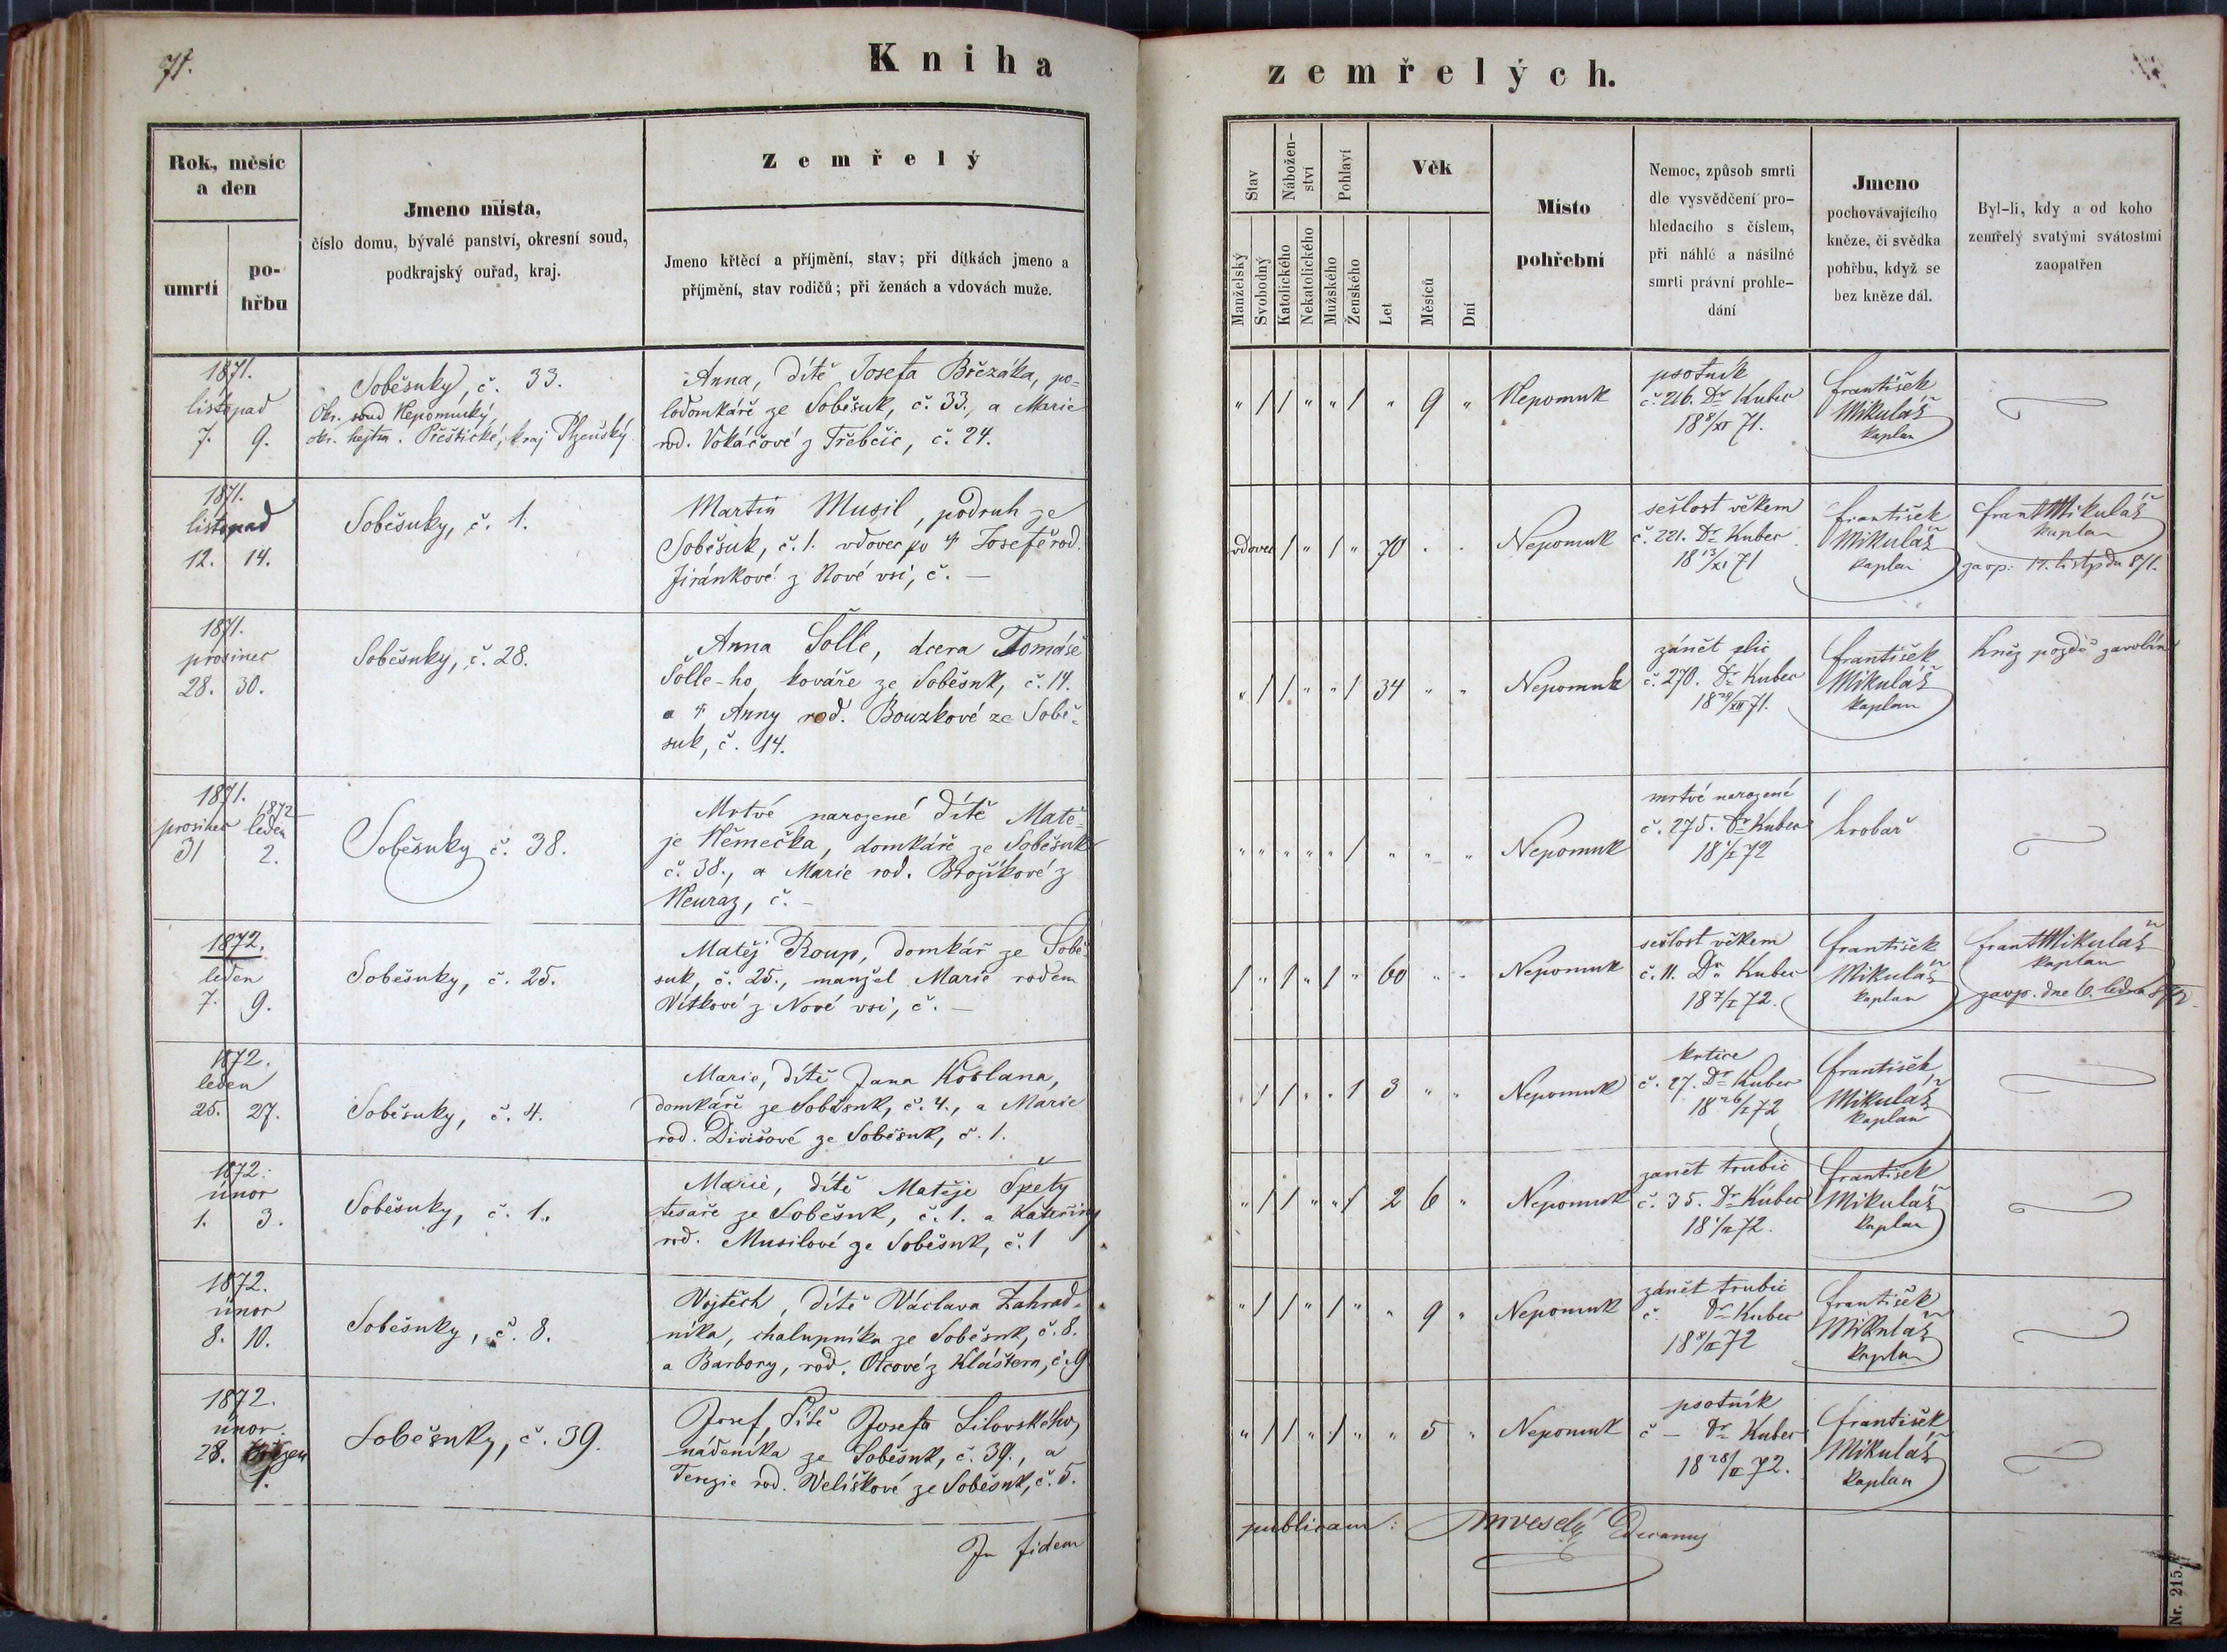 71.
Kniha
zemřelých.
Rok, měsíc
a den
umrtí
po-
hřbu
Jmeno místa,
číslo domu, bývalé panství, okresní soud,
podkrajský ouřad, kraj.
Zemřelý
Jmeno křtěcí a příjmění, stav; při dítkách jmeno a
příjmění, stav rodičů; při ženách a vdovách muže.
Stav
Manželský
Svobodný
Nábožen-
ství
Katolického
Nekatolického
Pohlaví
Mužského
Ženského
Věk
Let
Měsíců
Dní
Místo
pohřební
Nemoc, způsob smrti
dle vysvědčení pro-
hledacího s číslem,
při náhlé a násilné
smrti právní prohle-
dání
Jmeno
pochovávajícího
kněze, či svědka
pohřbu, když se
bez kněze dál.
Byl-li, kdy a od koho
zemřelý svatými svátostmi
zaopatřen
1871.
listopad
7. 9.
Soběsuky, č. 33.
Okr. soud Nepomucký,
okr. hejtm. Přeštické, kraj Plzeňský
Anna, dítě Josefa Břczáka, po-
lodomkáře ze Soběsuk, č. 33., a Marie
rod. Vokáčové z Třebčic, č. 24.
" / / " " / " 9 "
Nepomuk
psotník
č. 216. Dr Kubec
18 8/XI 71.
František
Mikuláš
kaplan
1871.
listopad
12. 14.
Soběsuky, č. 1.
Martin Musil, podruh ze
Soběsuk, č. 1. vdovec po † Josefě rod.
Jiránkové z Nové vsi, č. —
vdovec / " / " 70 . .
Nepomuk
sešlost věkem
č. 221. Dr Kubec
18 13/XI 71
František
Mikuláš
kaplan
Frant Mikuláš
kaplan
zaop: 11. listpdu 871.
1871.
prosinec
28. 30.
Soběsuky, č. 28.
Anna Šolle, dcera Tomáše
Šolle-ho, kováře ze Soběsuk, č. 14.
a † Anny rod. Bouzkové ze Sobě-
suk, č. 14.
" / / " " / 34 " "
Nepomuk
zánět plic
č. 270. Dr Kubec
18 29/XII 71.
František
Mikuláš
kaplan
Kněz pozdě zavolán
1871. 1872
prosinec leden
31 2.
Soběsuky č. 38.
Mrtvé narozené dítě Matě-
je Němečka, domkáře ze Soběsuk
č. 38., a Marie rod. Brožíkové z
Neuraz, č. -
" " " " " / " " "
Nepomuk
mrtvé narozené
č. 275. Dr Kubec
18 1/I 72
hrobař
1872.
leden
7. 9.
Soběsuky, č. 25.
Matěj Roup, domkář ze Sobě-
suk, č. 25., manžel Marie rodem
Vítkové z Nové vsi, č. —
/ " / " / " 60 " "
Nepomuk
sešlost věkem
č. 11. Dr Kubec
18 7/I 72.
František
Mikuláš
kaplan
Frant Mikuláš
kaplan
zaop. dne 6. ledna 872.
1872.
leden
25. 27.
Soběsuky, č. 4.
Marie, dítě Jana Koslana,
domkáře ze Soběsuk, č. 4., a Marie
rod. Divišové ze Soběsuk, č. 1.
" / / " " 1 3 " "
Nepomuk
krtice
č. 27. Dr Kubec
18 26/I 72
František
Mikuláš
kaplan
1872.
únor
1. 3.
Soběsuky, č. 1.
Marie, dítě Matěje Špety
tesaře ze Soběsuk, č. 1. a Kateřiny
rod. Musilové ze Soběsuk, č. 1
" / / " " / 2 6 "
Nepomuk
zanět trubic
č. 35. Dr Kubec
18 1/II 72.
František
Mikuláš
kaplan
1872.
únor
8. 10.
Soběsuky, č. 8.
Vojtěch, dítě Václava Zahrad-
níka, chalupníka ze Soběsuk, č. 8.
a Barbory, rod. Otcové z Kláštera, č. 9
" / / " / " " 9 "
Nepomuk
zánět trubic
č. Dr Kubec
18 8/II 72
František
Mikuláš
kaplan
1872.
únor.
28. březen
1.
Soběsuky, č. 39.
Josef, dítě Josefa Silovského,
nádeníka ze Soběsuk, č. 39., a
Terezie rod. Velíškové ze Soběsuk, č. 5.
" / / " / " " 5 "
Nepomuk
psotník
č — Dr Kubec
18 28/II 72.
František
Mikuláš
kaplan
In fidem
publicam: Veselý Decanus
Nr. 215.